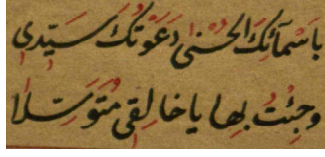 بِاَسْمَآئِكَ الْحُسْنٰى دَعَوْتُكَ سَيِّدِى
وَجِئْتُ بِهَا يَا خَالِقِى مُتَوَسِّلًا